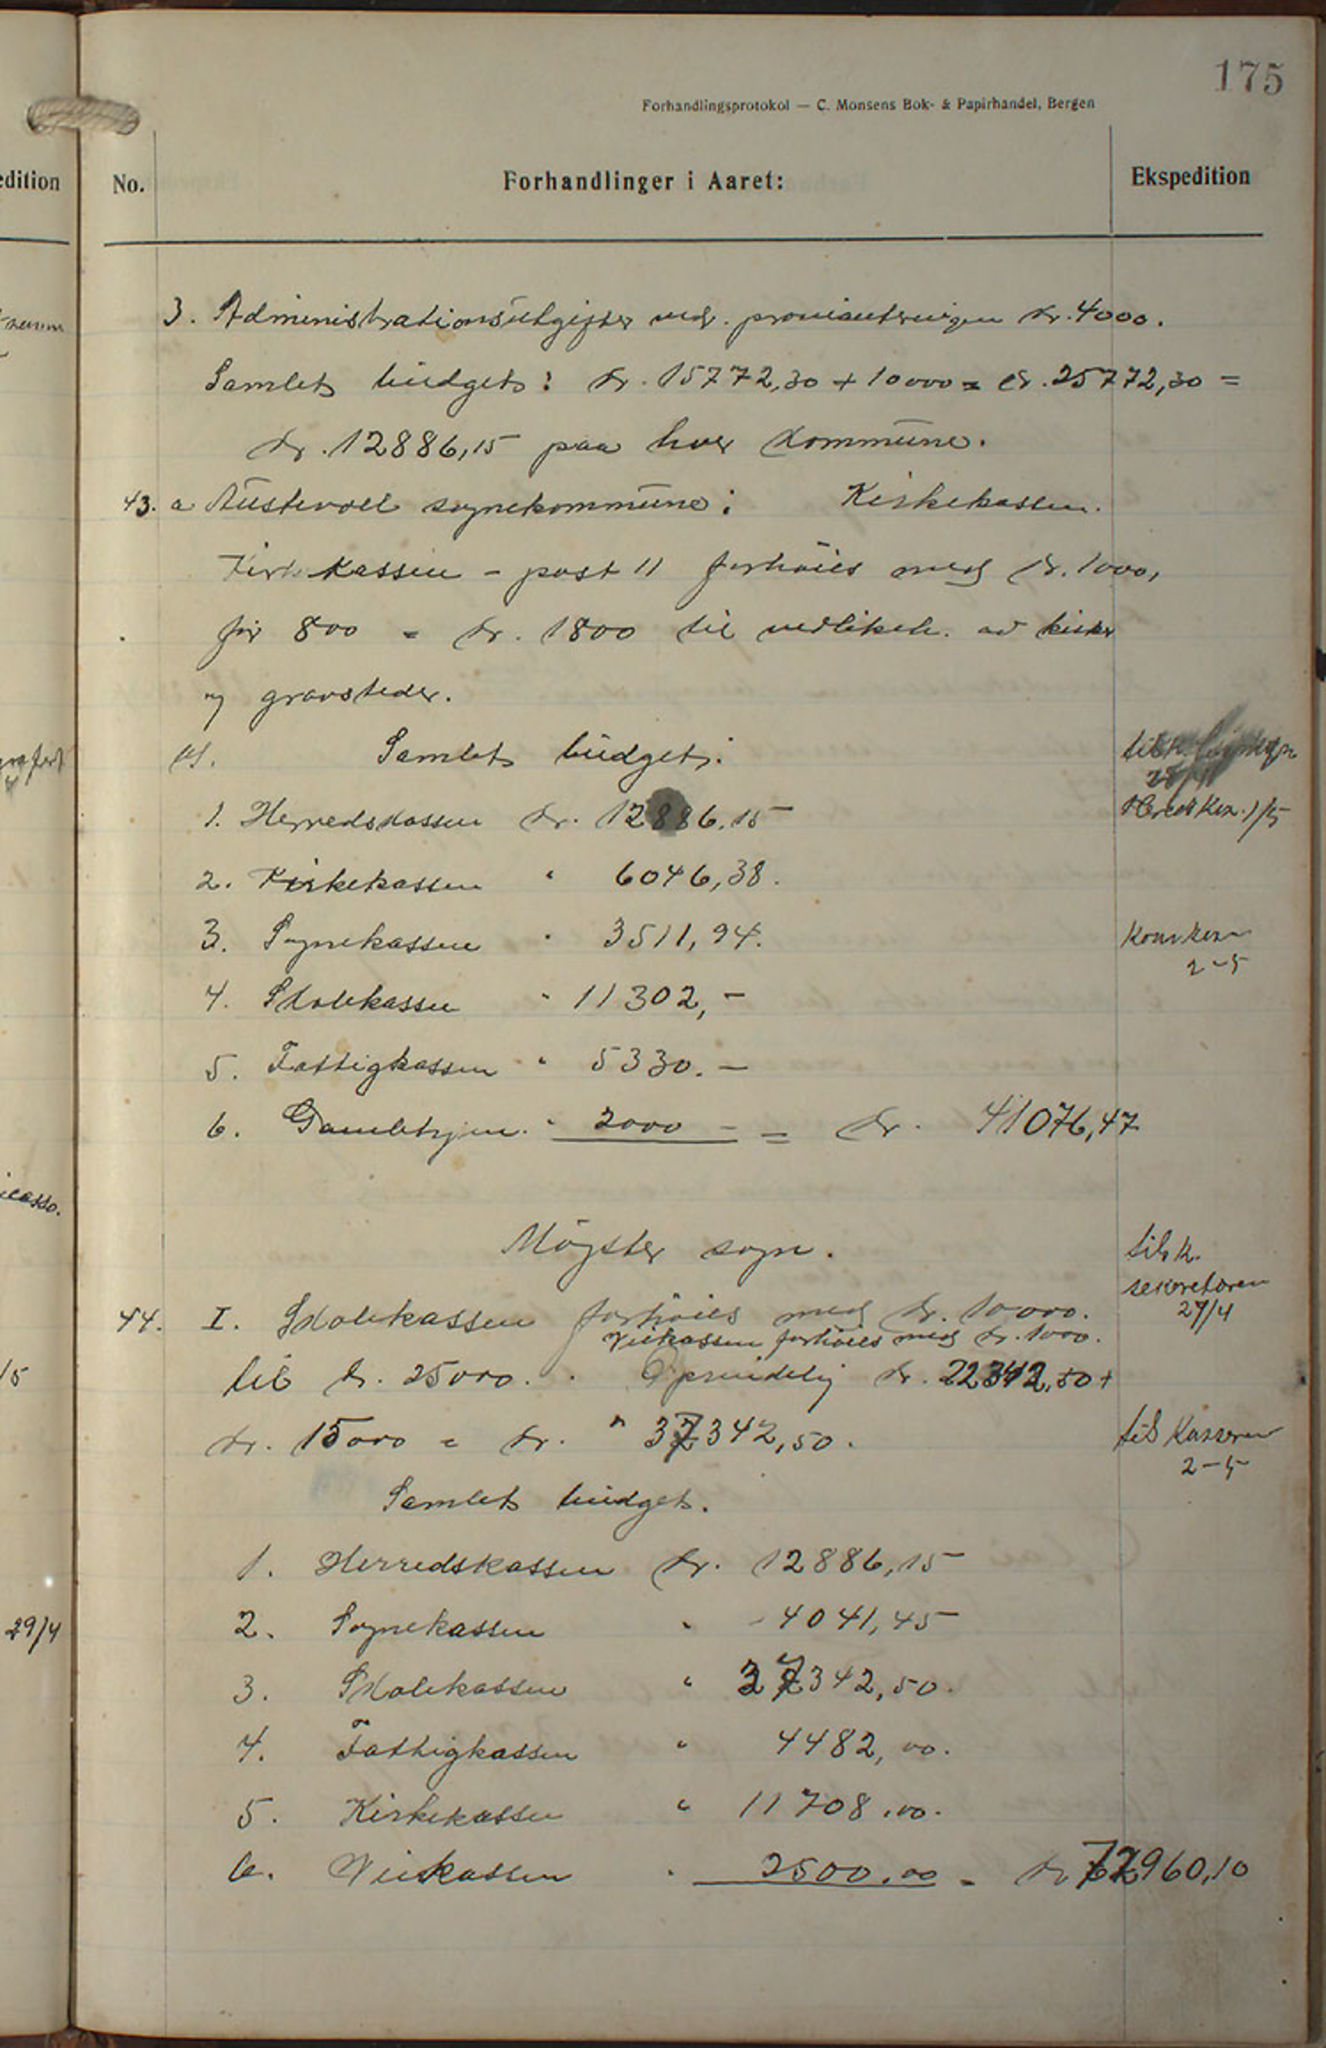 175
Forhandlingsprotokol — C. Monsens Bok- & Papirhandel, Bergen
edition
No.
Forhandlinger i Aaret:
Ekspedition
3. Administrationsutgifter ved. provianteringen kr. 4000.
Samlet budget: kr. 15772,30 + 10000 = kr. 25772,30 =
kr. 12886,15 paa hver kommune.
43. a Austevoll sognekommune: Kirkekassen.
Kirkekassen - post 11 forhöies med kr. 1000,
för 800 = kr. 1800 til vedlikeh. av kirker
og gravsteder.
Samlet budget:
1. Herredskassen kr. 12886,15
2. Kirkekassen " 6046,38.
3. Sognekassen " 3511,94.
4. Skolekassen " 11302,-
5. Fattigkassen " 5330.-
6. Gamlehjem. " 2000 - = kr. 41076,47
1/5
2-5
Mögster sogn.
til k.
sekretæren
27/4
44. I. Skolekassen forhöies med kr. 10000.
Veikassen forhöies med kr. 1000.
til kr. 25000. Oprindelig kr. 22342,50 +
kr. 15000 = kr. " 37342,50.
til Kasseren
2-5
Samlet budget.
1. Herredskassen kr. 12886,15
2. Sognekassen " 4041,45
3. Skolekassen " 37342,50.
4. Fattigkassen " 4482,00.
5. Kirkekassen " 11708,00.
6. Veikassen " 2500.00 = kr 72960,10
29/4